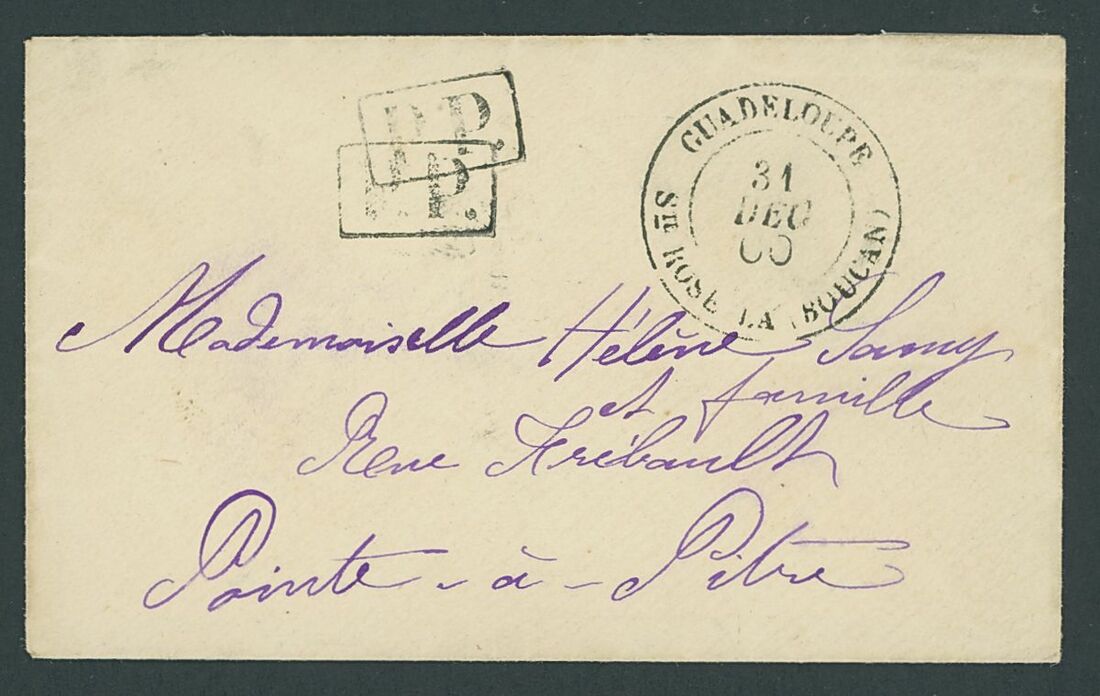 P.P.
P.P.
GUADELOUPE
31
DEC
00
Ste ROSE (LA BOUCAN)
Mademoiselle Hélène Samy
et famille
Rue Frébault
Pointe-à-Pitre